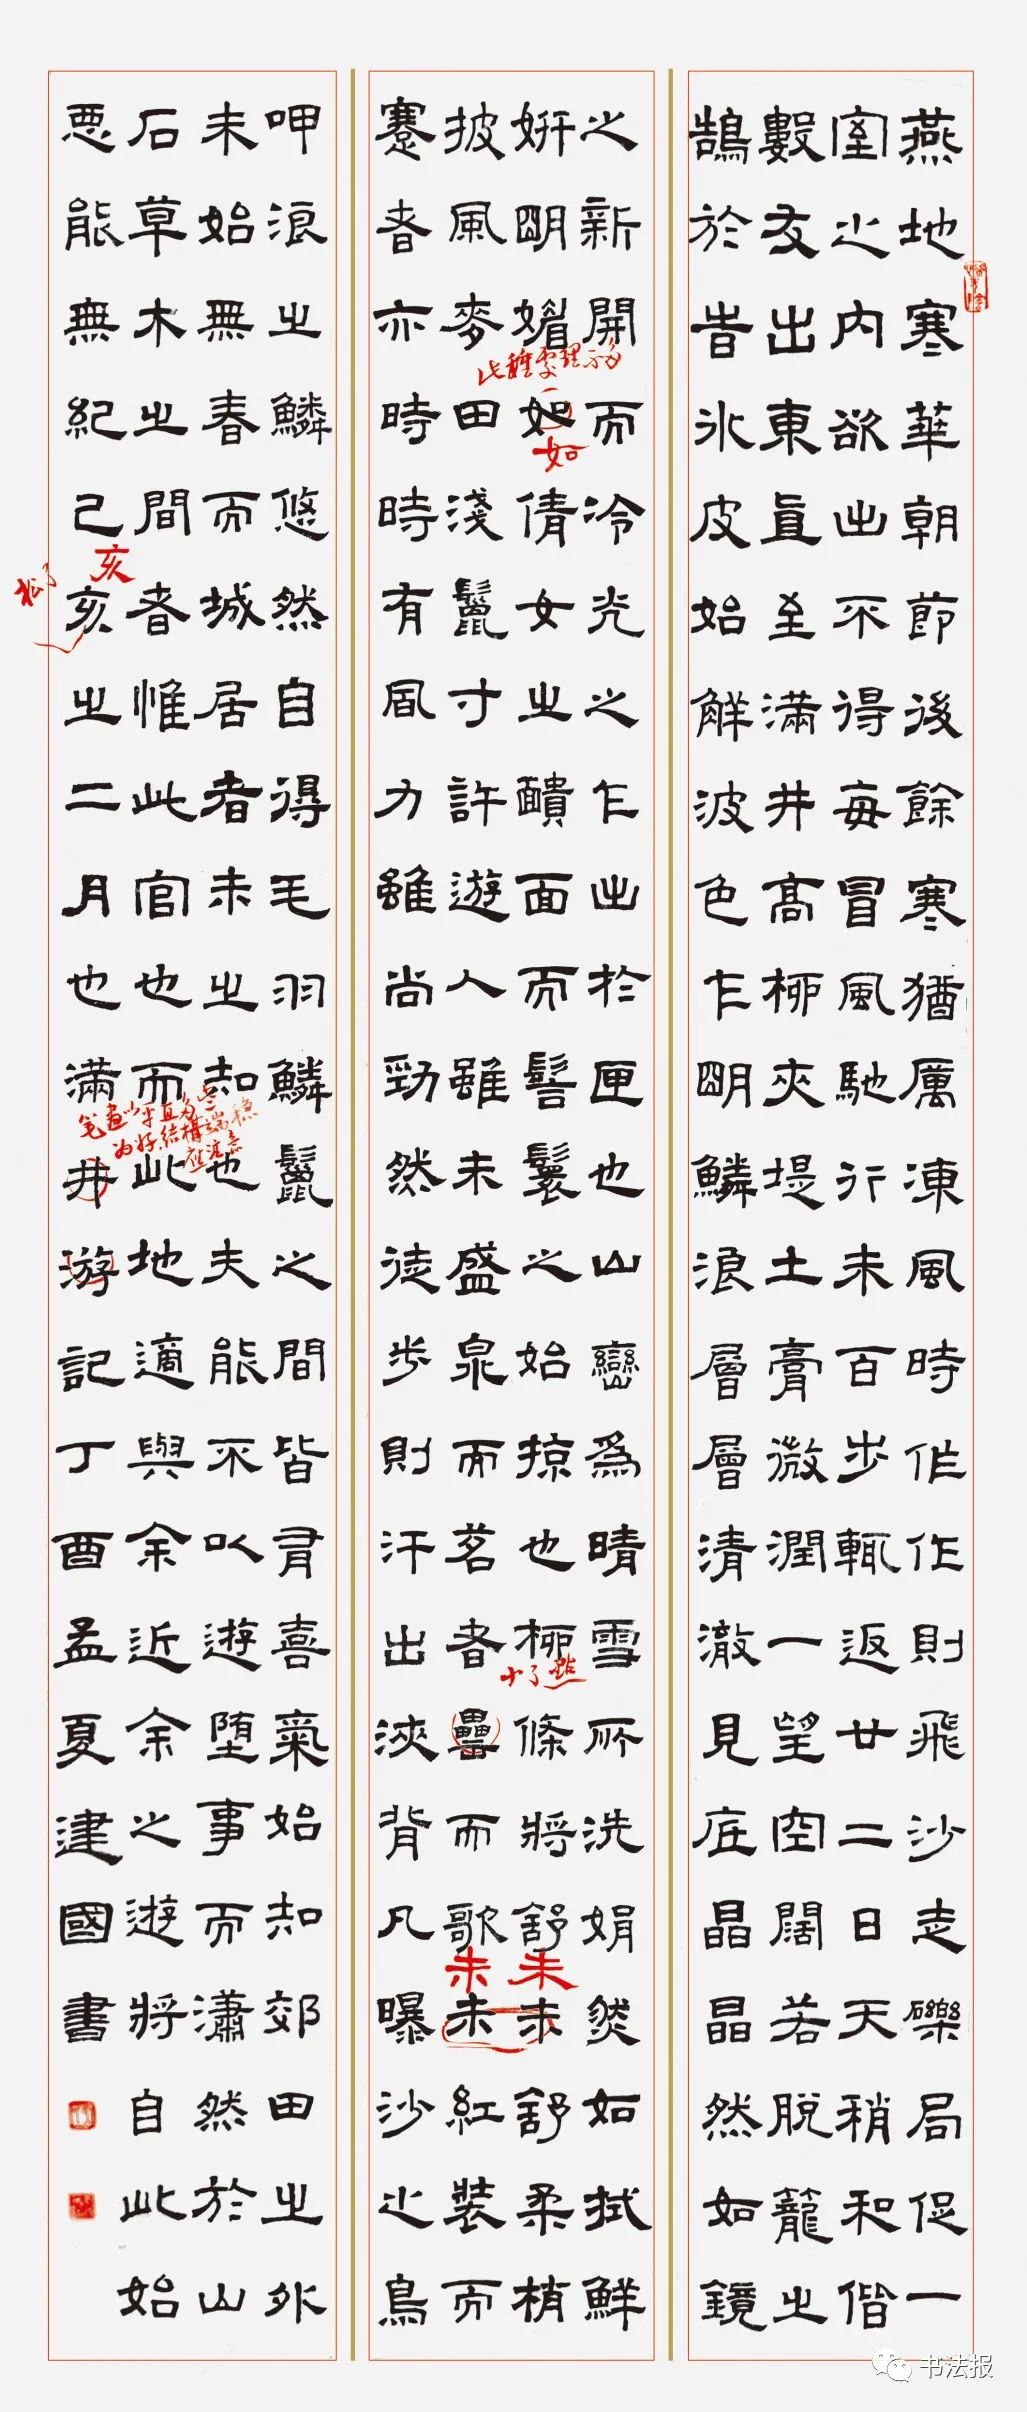 燕地寒華朝節後餘寒猶厲凍風時作作則飛沙走礫局促一
室之內欲出不得每冒風馳行未百步輒返廿二日天稍和偕
數友出東直至滿井高柳夾堤土膏微潤一望空闊若脫籠之
鵠於旹冰皮始解波色乍明鱗浪層層清澈見底晶晶然如鏡
之新開而冷光之乍出於匣也山巒為晴雪所洗娟然如拭鮮
妍明媚如倩女之靧面而髻鬟之始掠也柳條將舒未舒柔梢
披風麥田淺鬣寸許遊人雖未盛泉而茗者罍而歌未紅裝而
蹇者亦時時有風力雖尚勁然徒步則汗出浹背凡曝沙之鳥
呷浪之鱗悠然自得毛羽鱗鬣之間皆有喜氣始知郊田之外
未始無春而城居者未之知也夫能不以遊墮事而瀟然於山
石草木之間者惟此官也而此地適與余近余之遊將自此始
惡能無紀己亥之二月也滿井游記丁酉孟夏建國書
此種處理不多
如
少了點
未未
亥
松了
笔画以平直多些
为好.结構端稳
应注意
书法报